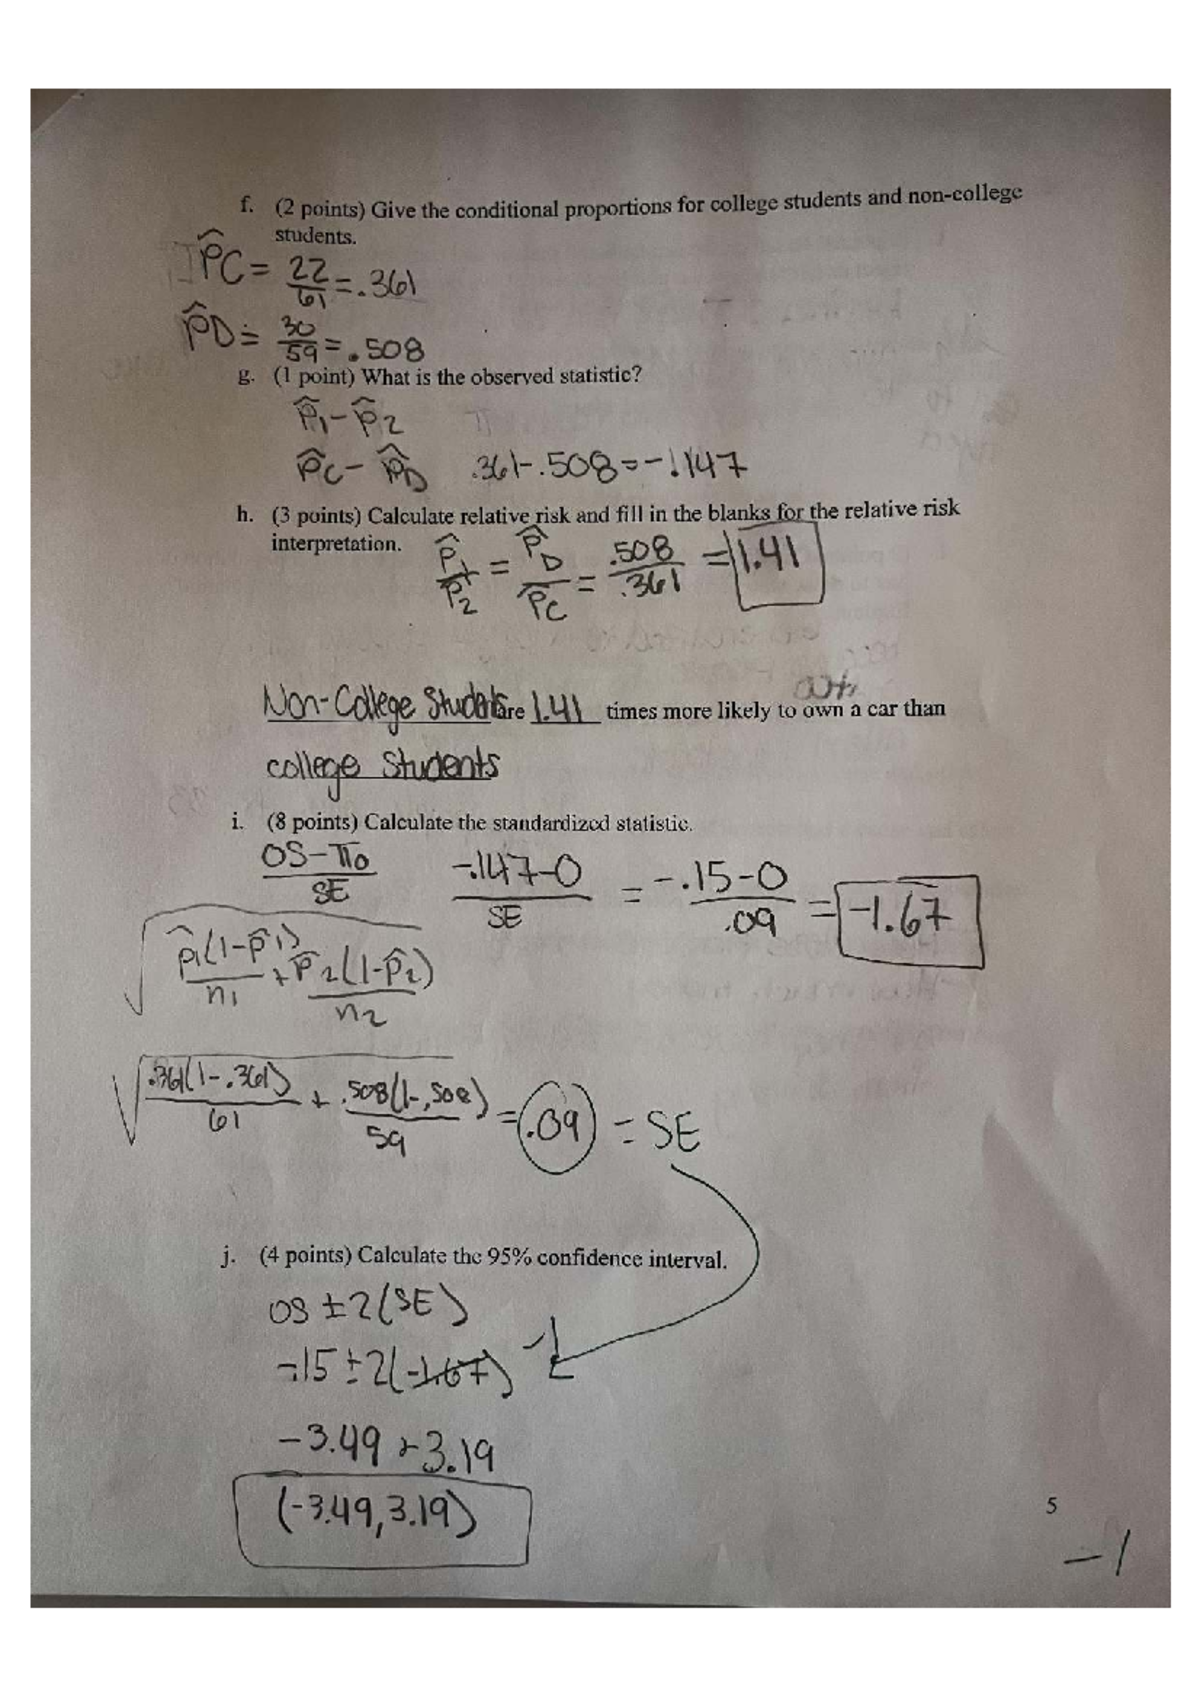 f. (2 points) Give the conditional proportions for college students and non-college
students.
p̂C = 22/61 = .361
p̂D = 30/59 = .508
g. (1 point) What is the observed statistic?
p̂1 - p̂2
p̂C - p̂D .361-.508 = -.147
h. (3 points) Calculate relative risk and fill in the blanks for the relative risk
interpretation.
p̂1/p̂2 = p̂D/p̂C = .508/.361 = 1.41
Non-College Students are 1.41 times more likely to own a car than
college Students
i. (8 points) Calculate the standardized statistic.
OS-π0/SE -.147-0/SE = -.15-0/.09 = -1.67
√p̂1(1-p̂1)/n1 + p̂2(1-p̂2)/n2
√.361(1-.361)/61 + .508(1-.508)/59 = .09 = SE
j. (4 points) Calculate the 95% confidence interval.
OS ± 2(SE)
-.15 ± 2(-1.67) -1
-3.49 + 3.19
(-3.49, 3.19)
5
-1